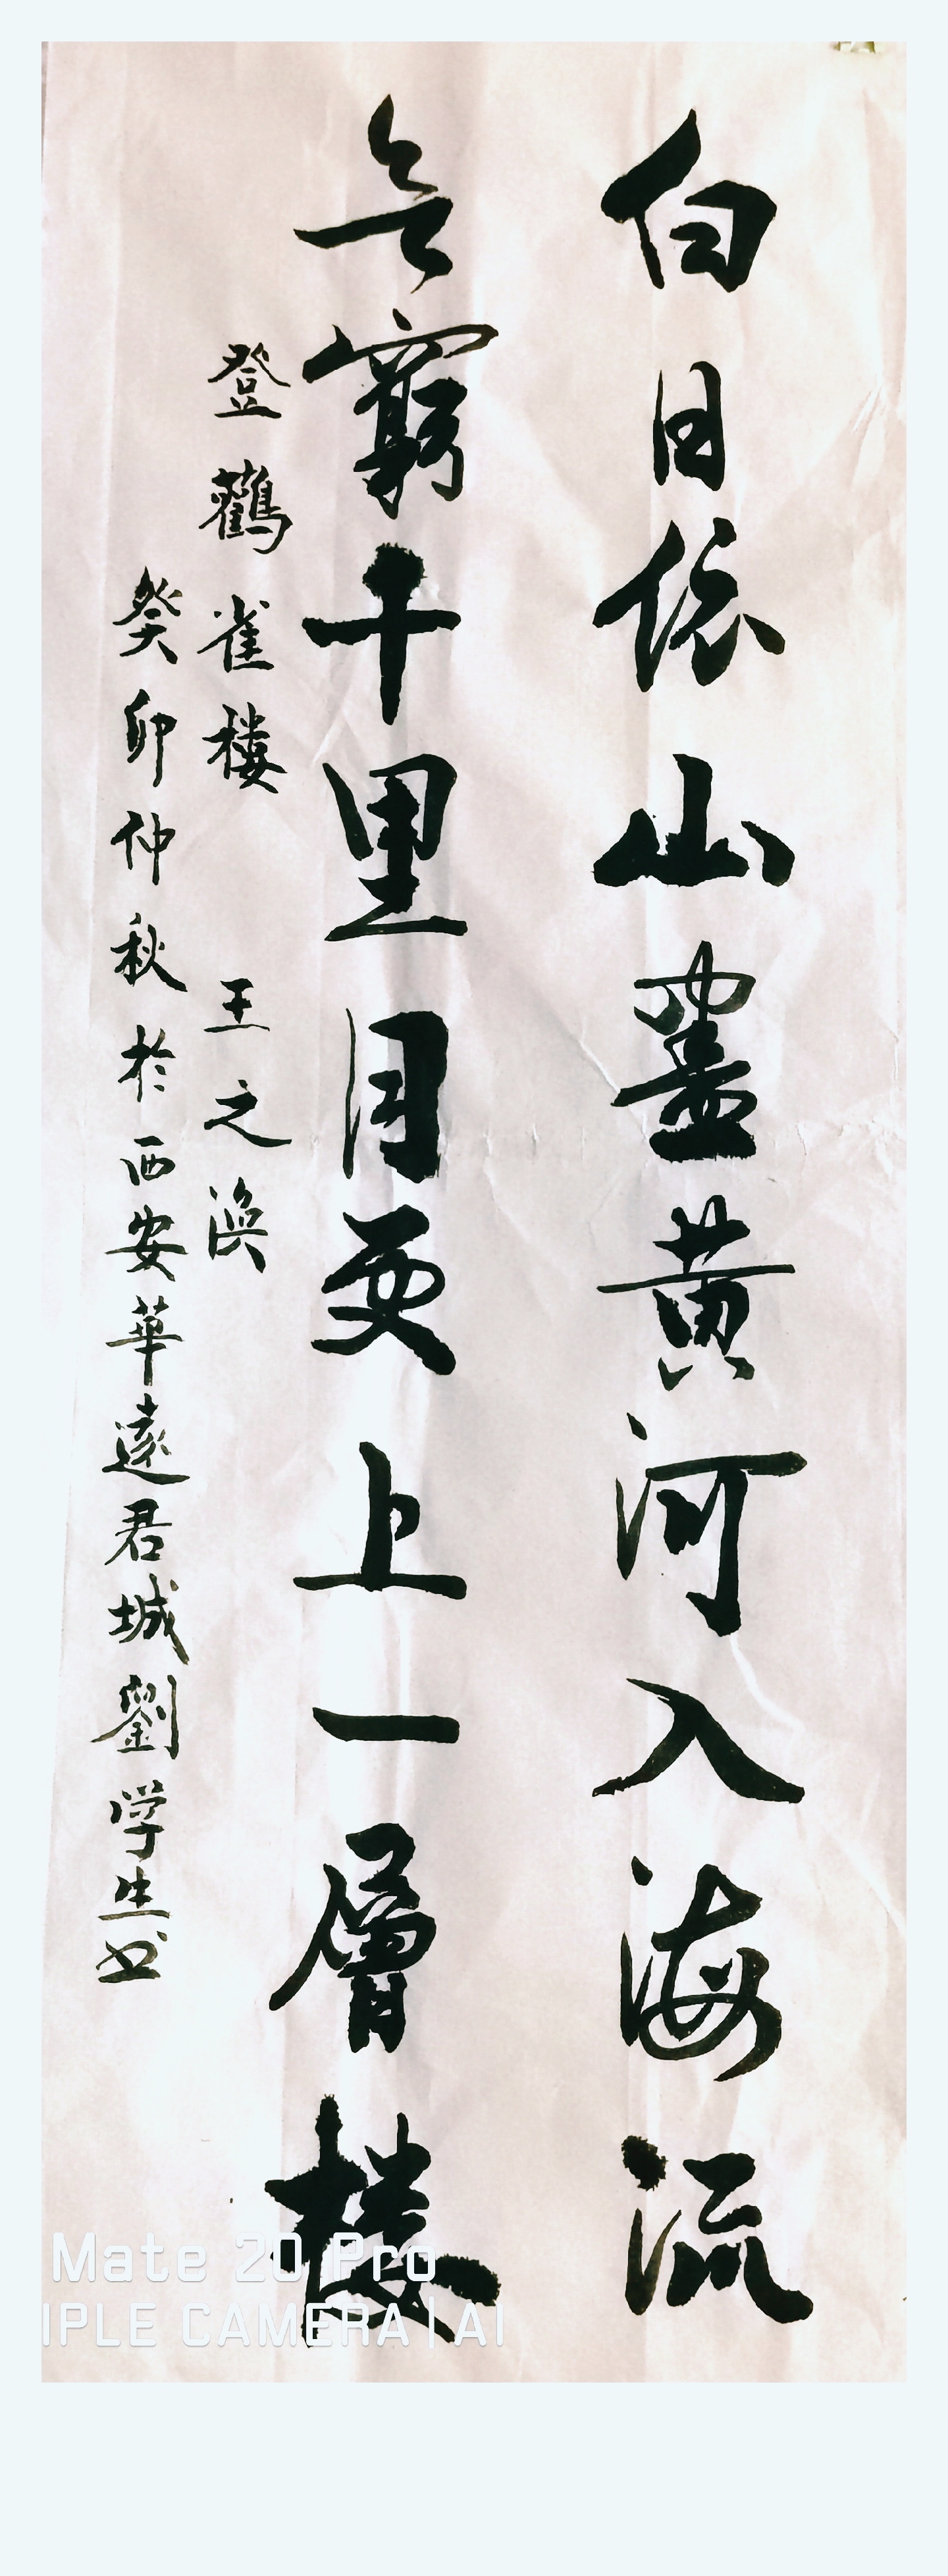 白日依山盡黄河入海流
欲窮千里目更上一層楼
登鸛雀楼 王之渙
癸卯仲秋於西安華遠君城劉学生书
Mate 20 Pro
IPLE CAMERA | AI